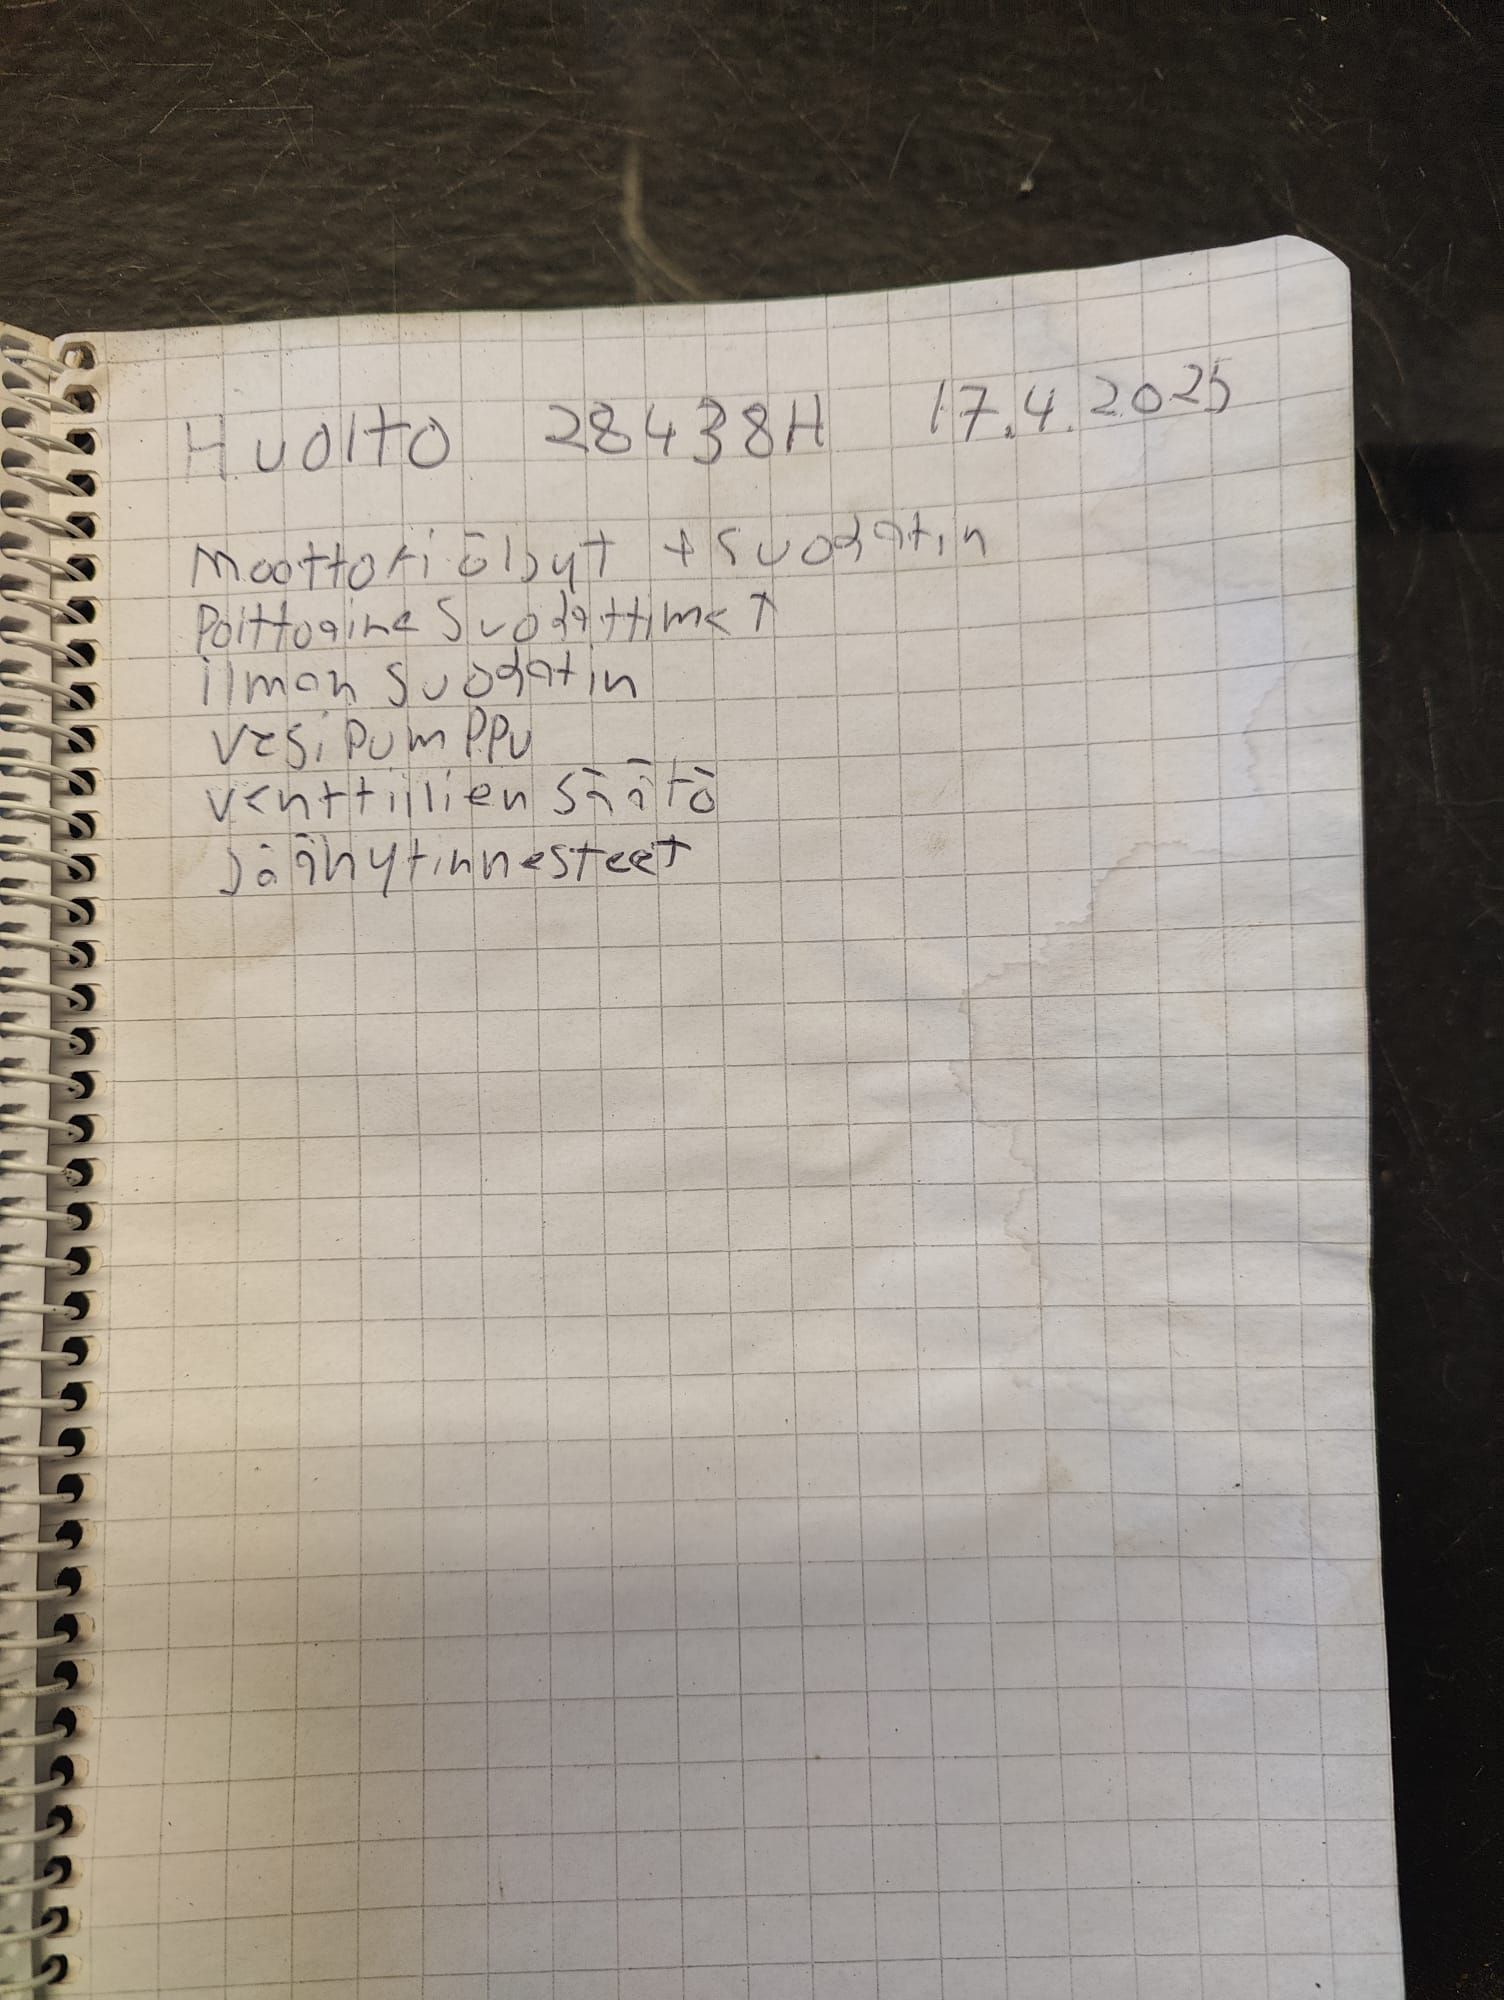 Huolto 28438H 17.4.2025
Moottoriöljyt + suodatin
Polttoaine suodattimet
ilman suodatin
vesipumppu
venttiilien säätö
Jäähytinnesteet